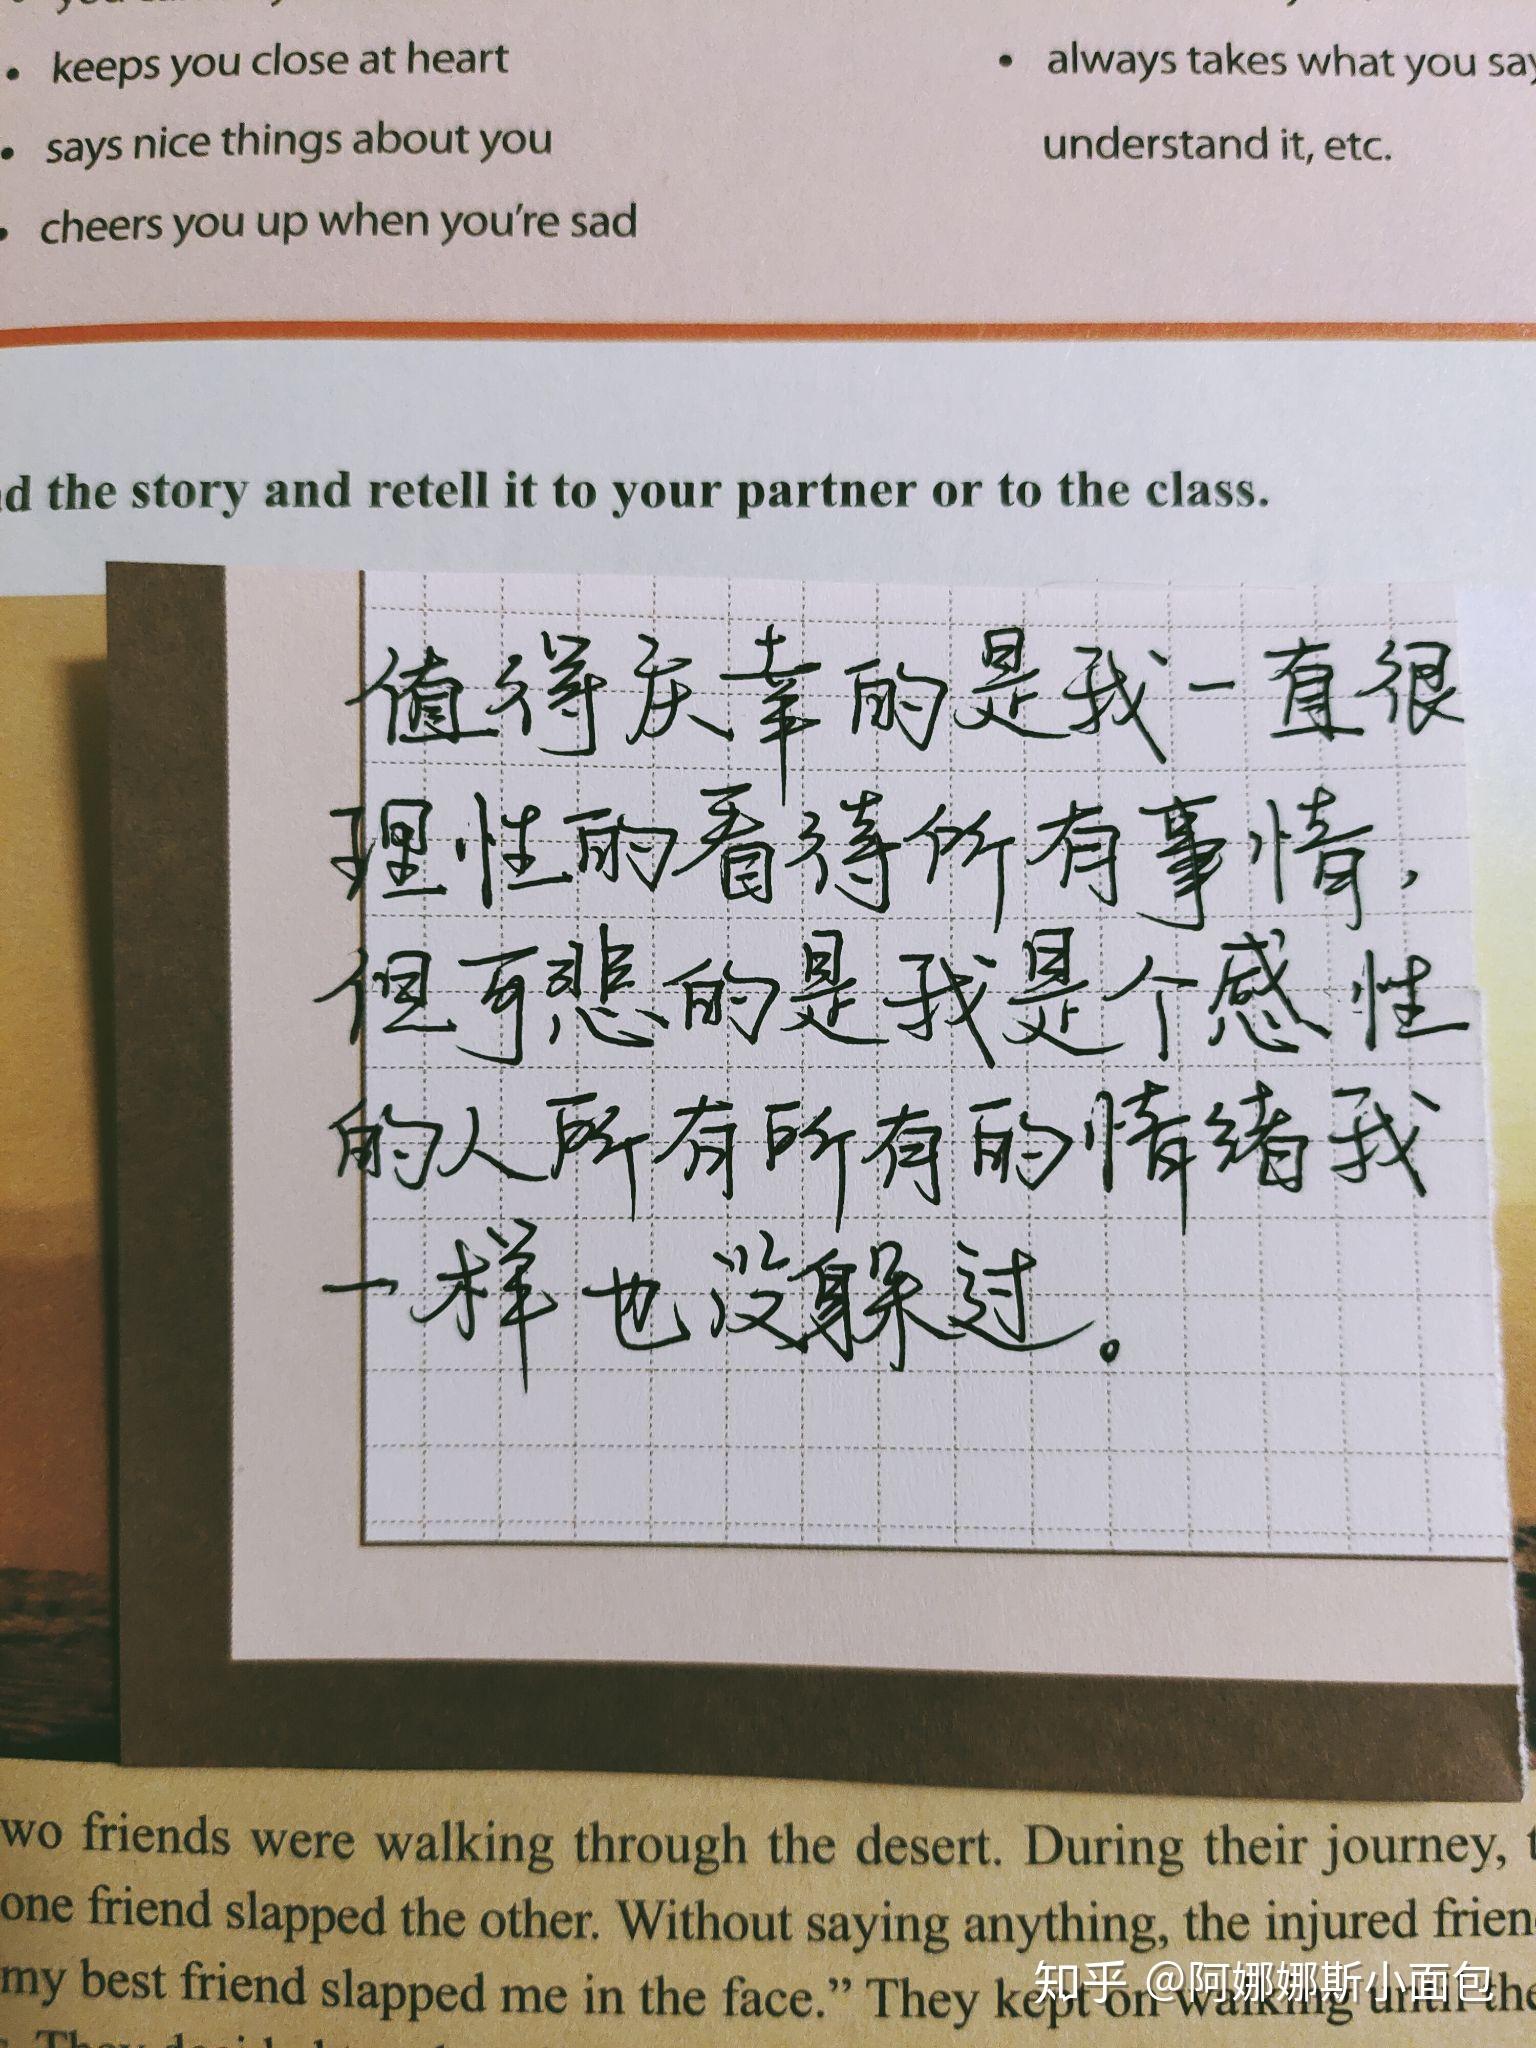 • keeps you close at heart
• says nice things about you
• cheers you up when you're sad
• always takes what you say
understand it, etc.
the story and retell it to your partner or to the class.
值得庆幸的是我一直很
理性的看待所有事情，
但可悲的是我是个感性
的人所有所有的情绪我
一样也没躲过。
wo friends were walking through the desert. During their journey,
one friend slapped the other. Without saying anything, the injured frien
my best friend slapped me in the face.” They kept on walking until the
知乎 @阿娜娜斯小面包